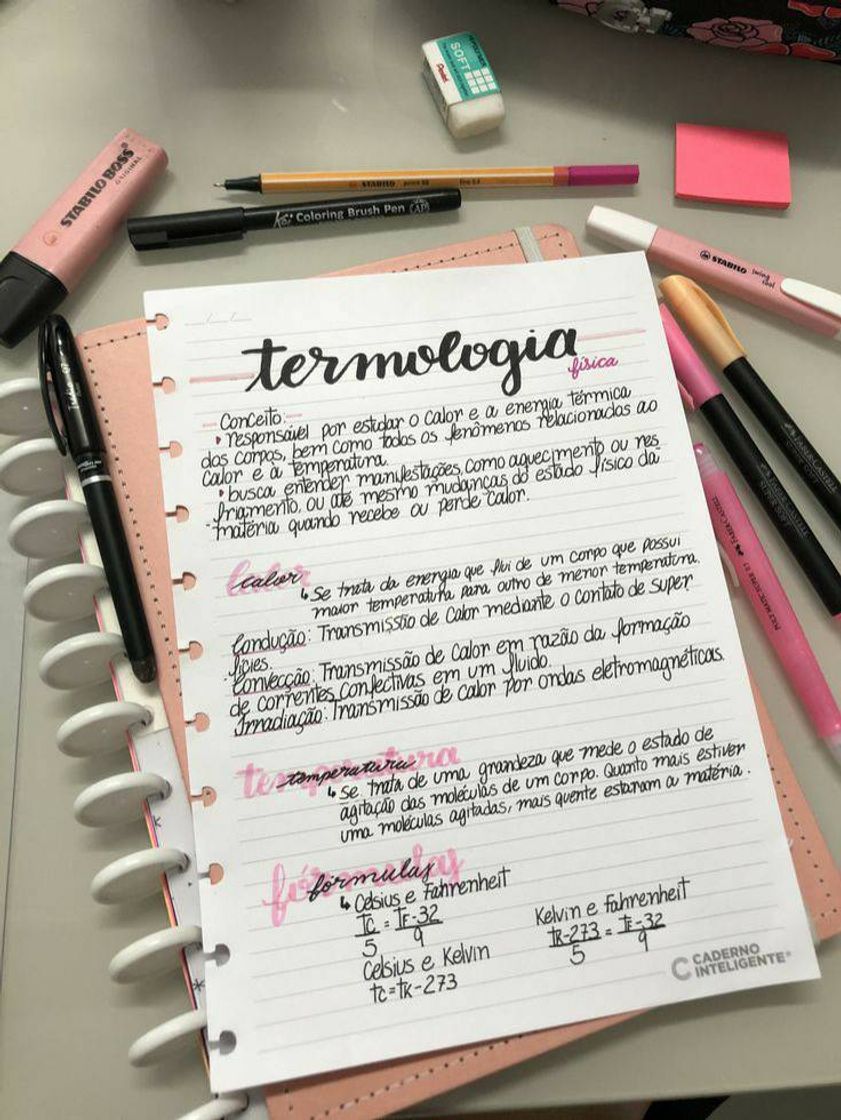 PENTEL
SOFT
Pentel
STABILO BOSS
ORIGINAL
STABILO point 88 fine 0,4
Koi Coloring Brush Pen AP
STABILO swing cool
termologia
física
Conceito:
• responsável por estudar o calor e a energia térmica
dos corpos, bem como todos os fenômenos relacionados ao
calor e à temperatura.
• busca entender manifestações, como aquecimento ou res
-friamento, ou até mesmo mudanças do estado físico da
matéria quando recebe ou perde calor.
calor
↳ Se trata da energia que flui de um corpo que possui
maior temperatura para outro de menor temperatura.
Condução: Transmissão de Calor mediante o contato de super
fícies.
Convecção: Transmissão de Calor em razão da formação
de correntes confectivas em um fluido.
Irradiação: Transmissão de calor por ondas eletromagnéticas.
temperatura
↳ Se trata de uma grandeza que mede o estado de
agitação das moléculas de um corpo. Quanto mais estiver
uma moléculas agitadas, mais quente estaram a matéria.
fórmulas
↳ Celsius e Fahrenheit
TC = TF-32
5 9
Celsius e Kelvin
TC=TK-273
Kelvin e Fahrenheit
TK-273 = TF-32
5 9
CADERNO
INTELIGENTE®
FABER-CASTELL
K
*